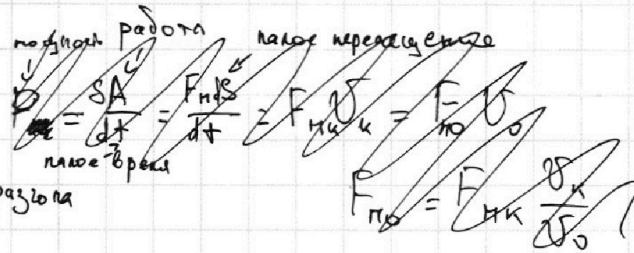 мощность работа малое перемещение
P = δA/dt = F_п dS/dt = F_пк v_к = F_по v_0
малое время
разгона
F_по = F_пк v_к/v_0 (